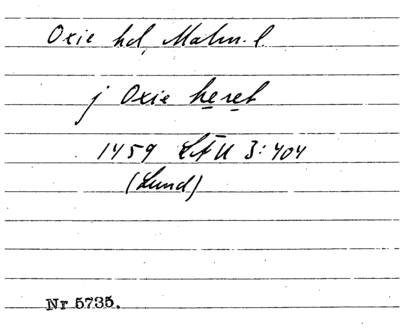 Oxie hd, Malm. l.
j Oxie heret
1459 LÄU 3:404
(Lund)
Nr 5735.